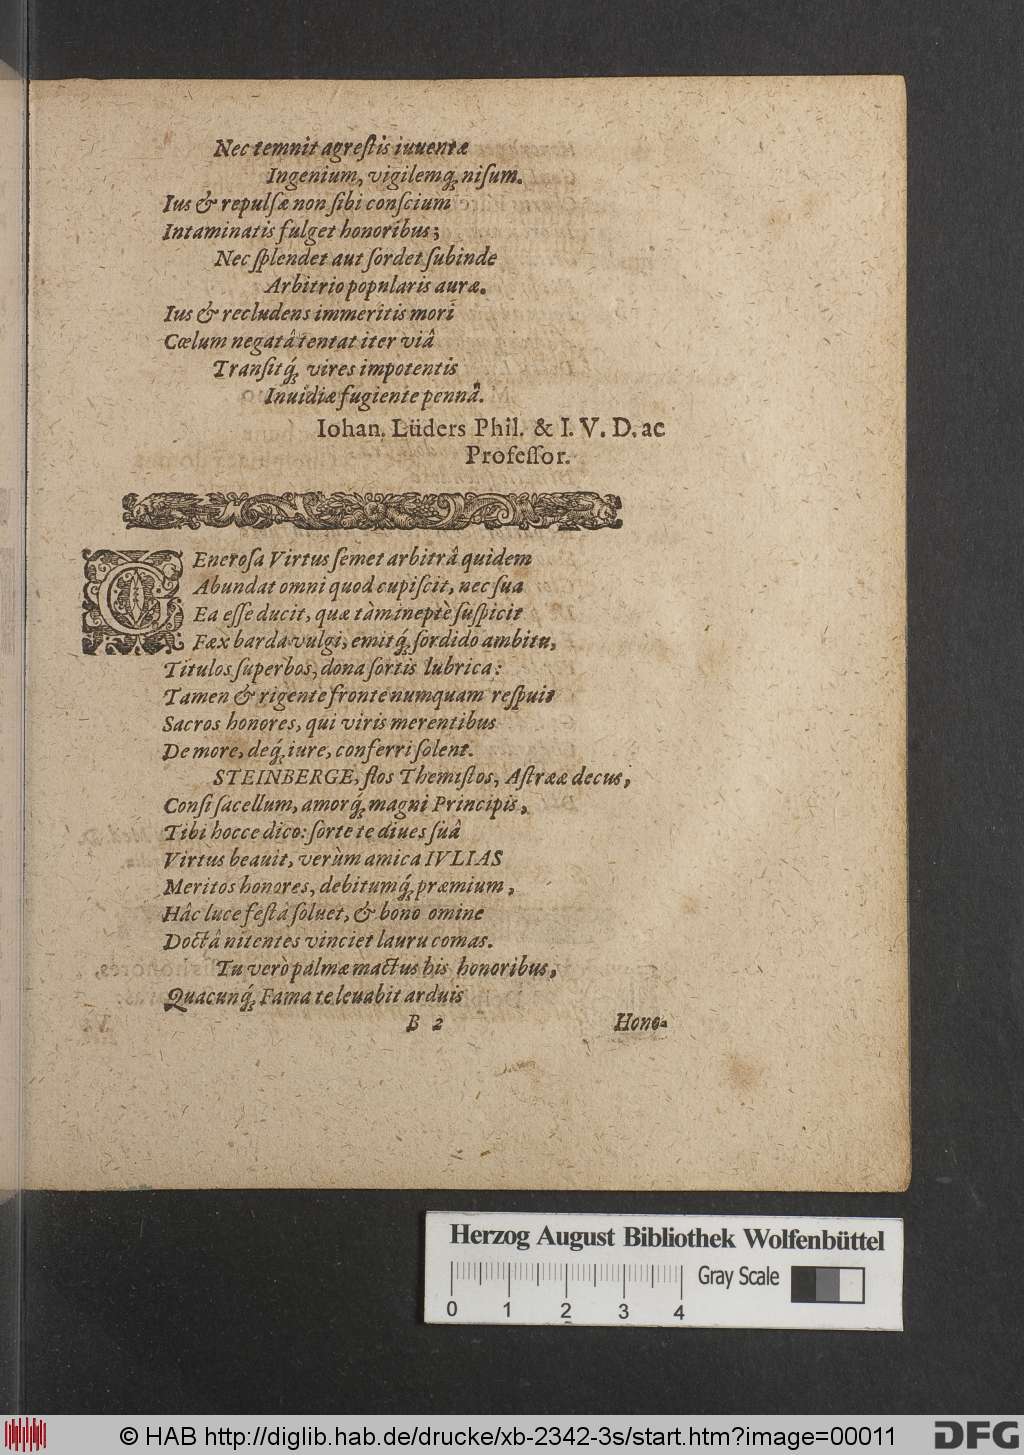 Nec temnit agreſtis iuuentæ
Ingenium, vigilemq́; niſum.
Ius & repulſæ non ſibi conſcium
Intaminatis fulget honoribus;
Nec ſplendet aut ſordet ſubinde
Arbitrio popularis auræ.
Ius & recludens immeritis mori
Cœlum negatâ tentat iter viâ
Tranſitq́; vires impotentis
Inuidiæ fugiente pennâ.
Iohan. Lüders Phil. & I. V. D. ac
Profeſſor.
GEneroſa Virtus ſemet arbitrâ quidem
Abundat omni quod cupiſcit, nec ſua
Ea eſſe ducit, quæ tàm ineptè ſuſpicit
Fæx barda vulgi, emitq́; ſordido ambitu,
Titulos ſuperbos, dona ſortis lubrica:
Tamen & rigente fronte numquam reſpuit
Sacros honores, qui viris merentibus
De more, deq́; iure, conferri ſolent.
STEINBERGE, flos Themiſtos, Aſtrææ decus,
Conſi ſacellum, amorq́; magni Principis,
Tibi hocce dico: ſorte te diues ſuâ
Virtus beauit, verùm amica IVLIAS
Meritos honores, debitumq́; præmium,
Hâc luce feſtâ ſoluet, & bono omine
Doctâ nitentes vinciet lauru comas.
Tu verò palmæ mactus his honoribus,
Quacunq́; Fama te leuabit arduis
B 2 Hono-
Herzog August Bibliothek Wolfenbüttel
Gray Scale
0 1 2 3 4
© HAB http://diglib.hab.de/drucke/xb-2342-3s/start.htm?image=00011
DFG